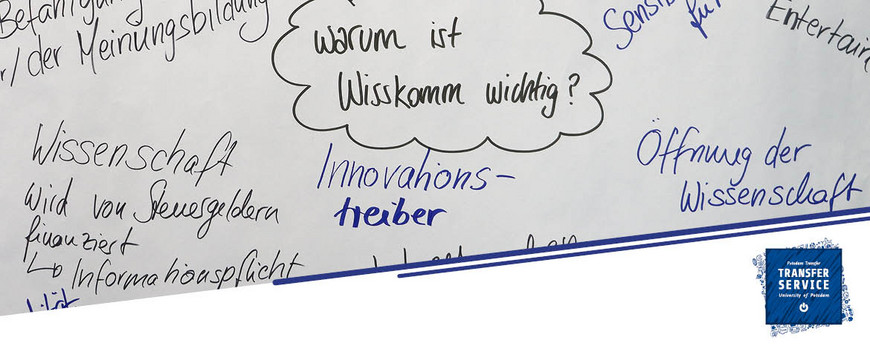 Befähigung
/ der Meinungsbildung
warum ist
Wisskomm wichtig?
für
Entertain
Wissenschaft
wird von Steuergeldern
finanziert
↳ Informationspflicht
Innovations-
treiber
Öffnung der
Wissenschaft
Potsdam Transfer
TRANSFER
SERVICE
University of Potsdam